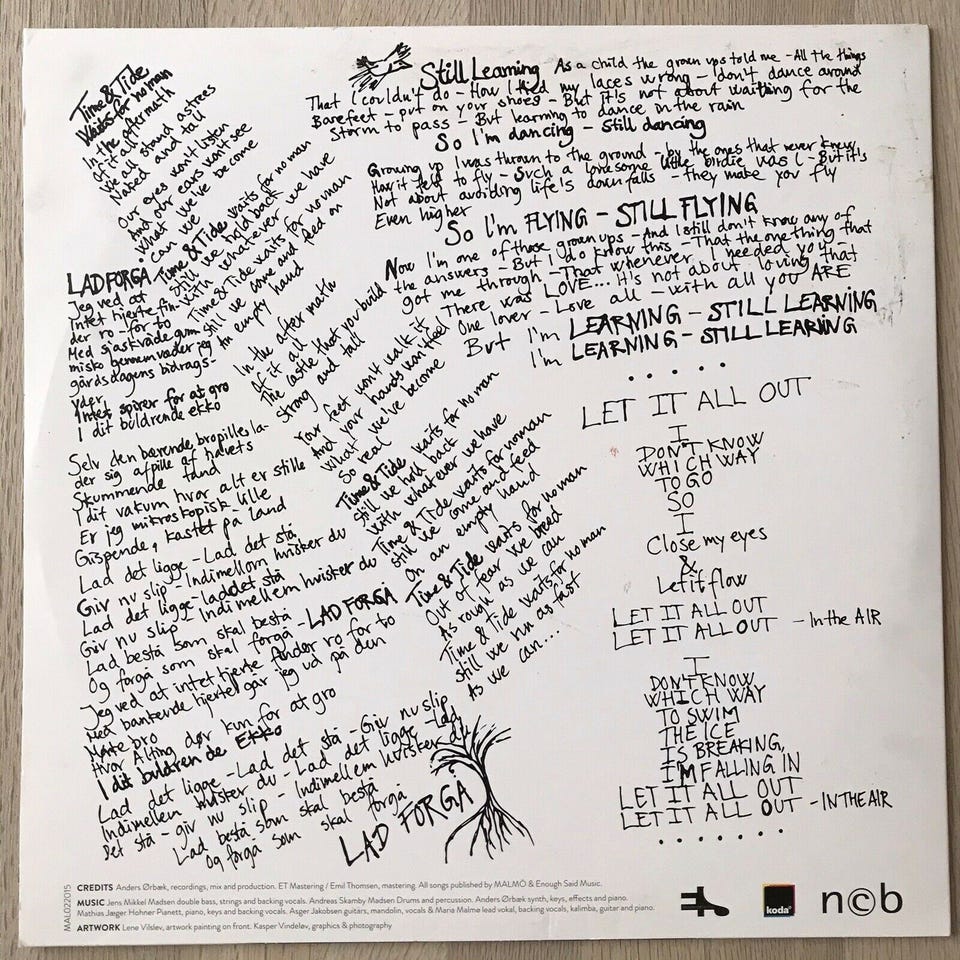 Time & Tide
Waits for no man
In the aftermath
Of it all
We all stand as trees
Naked and tall
Our eyes won't listen
And our ears won't see
What we've become
can we
Time & Tide waits for no man
Still we hold back
With whatever we have
Time & Tide waits for no man
Still we come and feed on
An empty hand
In the after math
Of it all
The castle that you build
Strong and tall
Your feet won't walk it
And your hands won't feel
What we've become
So real
Time & Tide waits for no man
Still we hold back
With whatever we have
Time & Tide waits for no man
Still we come and feed
On an empty hand
Time & Tide waits for no man
Out of fear we breed
As rough as we can
Time & Tide waits for no man
Still we run as fast
As we can....
Still Learning As a child the grown ups told me - All the things
That I couldn't do - How I tied my laces wrong - I don't dance around
Barefeet - put on your shoes - But it's not about waiting for the
Storm to pass - But learning to dance in the rain
So I'm dancing - Still dancing
Growing up I was thrown to the ground - by the ones that never knew
How it felt to fly - Such a lonesome little birdie was I - But it's
Not about avoiding life's downfalls - they make you fly
Even higher
So I'm FLYING - STILL FLYING
Now I'm one of those grown ups - And I still don't know any of
the answers - But I do know this - That the one thing that
got me through - That whenever I needed you -
There was LOVE... It's not about loving that
One lover - Love all - with all you ARE
But I'm LEARNING - STILL LEARNING
I'm LEARNING - STILL LEARNING
. . . . .
LAD FORGÅ
Jeg ved at
Intet hjerte fin-
der ro - for to
Med sjaskvåde gum-
misko gennemvader jeg
gårsdagens bidrags-
yder
Intet spirer for at gro
I dit buldrende ekko
Selv den bærende bropille sla-
der sig afpille af havets
Skummende tand
I dit vakum hvor alt er stille
Er jeg mikroskopisk lille
Gispende, kastet på land
Lad det ligge - Lad det stå
Giv nu slip - Indimellem hvisker du
Lad det ligge - lad det stå
Giv nu slip - Indimellem hvisker du
Lad bestå som skal bestå
Og forgå som skal forgå - LAD FORGÅ
Jeg ved at intet hjerte finder ro for to
Med bankende hjerte går jeg ud på den
Mørte bro
Hvor Alting dør kun for at gro
I dit buldren de EKKO
Lad det ligge - Lad det stå - Giv nu slip
Indimellem hvisker du - Lad det ligge - Lad
Det stå - giv nu slip - Indimellem hvisker du
Lad bestå som skal bestå
Og forgå som skal forgå
LAD FORGÅ
LET IT ALL OUT
I
DON'T KNOW
WHICH WAY
TO GO
SO
I
Close my eyes
&
Let it flow
LET IT ALL OUT
LET IT ALL OUT - In the AIR
I
DON'T KNOW
WHICH WAY
TO SWIM
THE ICE
IS BREAKING,
I'M FALLING IN
LET IT ALL OUT
LET IT ALL OUT - IN THE AIR
. . . . . .
MAL022015
CREDITS Anders Ørbæk, recordings, mix and production. ET Mastering / Emil Thomsen, mastering. All songs published by MALMÖ & Enough Said Music.
MUSIC Jens Mikkel Madsen double bass, strings and backing vocals. Andreas Skamby Madsen Drums and percussion. Anders Ørbæk synth, keys, effects and piano.
Mathias Jæger Hohner Pianett, piano, keys and backing vocals. Asger Jakobsen guitars, mandolin, vocals & Maria Malmö lead vocal, backing vocals, kalimba, guitar and piano.
ARTWORK Lene Vilsløv, artwork painting on front. Kasper Vindeløv, graphics & photography
koda
n©b